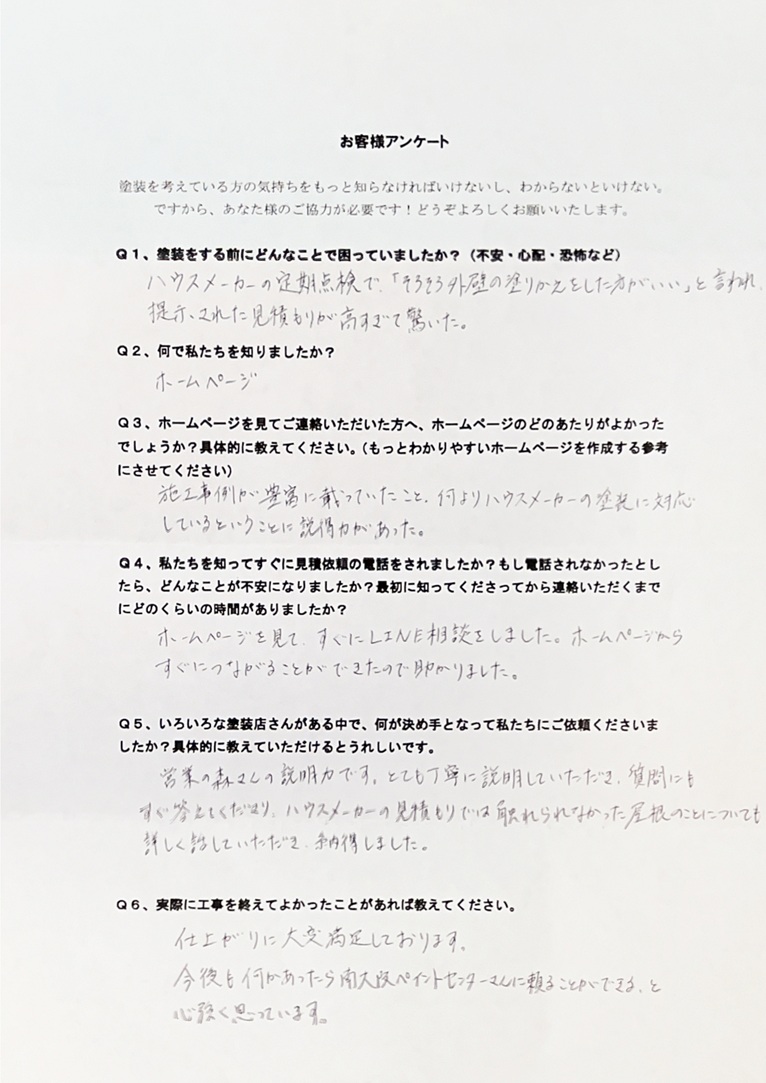 お客様アンケート
塗装を考えている方の気持ちをもっと知らなければいけないし、わからないといけない。
ですから、あなた様のご協力が必要です！どうぞよろしくお願いいたします。
Ｑ１、塗装をする前にどんなことで困っていましたか？（不安・心配・恐怖など）
ハウスメーカーの定期点検で、「そろそろ外壁の塗りかえをした方がいい」と言われ、
提示された見積もりが高すぎて驚いた。
Ｑ２、何で私たちを知りましたか？
ホームページ
Ｑ３、ホームページを見てご連絡いただいた方へ、ホームページのどのあたりがよかった
でしょうか？具体的に教えてください。（もっとわかりやすいホームページを作成する参考
にさせてください）
施工事例が豊富に載っていたこと、何よりハウスメーカーの塗装に対応
しているということに説得力があった。
Ｑ４、私たちを知ってすぐに見積依頼の電話をされましたか？もし電話されなかったとし
たら、どんなことが不安になりましたか？最初に知ってくださってから連絡いただくまで
にどのくらいの時間がありましたか？
ホームページを見て、すぐにLINE相談をしました。ホームページから
すぐにつながることができたので助かりました。
Ｑ５、いろいろな塗装店さんがある中で、何が決め手となって私たちにご依頼くださいま
したか？具体的に教えていただけるとうれしいです。
営業の森さんの説明力です。とても丁寧に説明していただき、質問にも
すぐ答えてくださり、ハウスメーカーの見積もりでは触れられなかった屋根のことについても
詳しく話していただき、納得しました。
Ｑ６、実際に工事を終えてよかったことがあれば教えてください。
仕上がりに大変満足しております。
今後も何かあったら南大阪ペイントセンターさんに頼ることができる、と
心強く思っています。